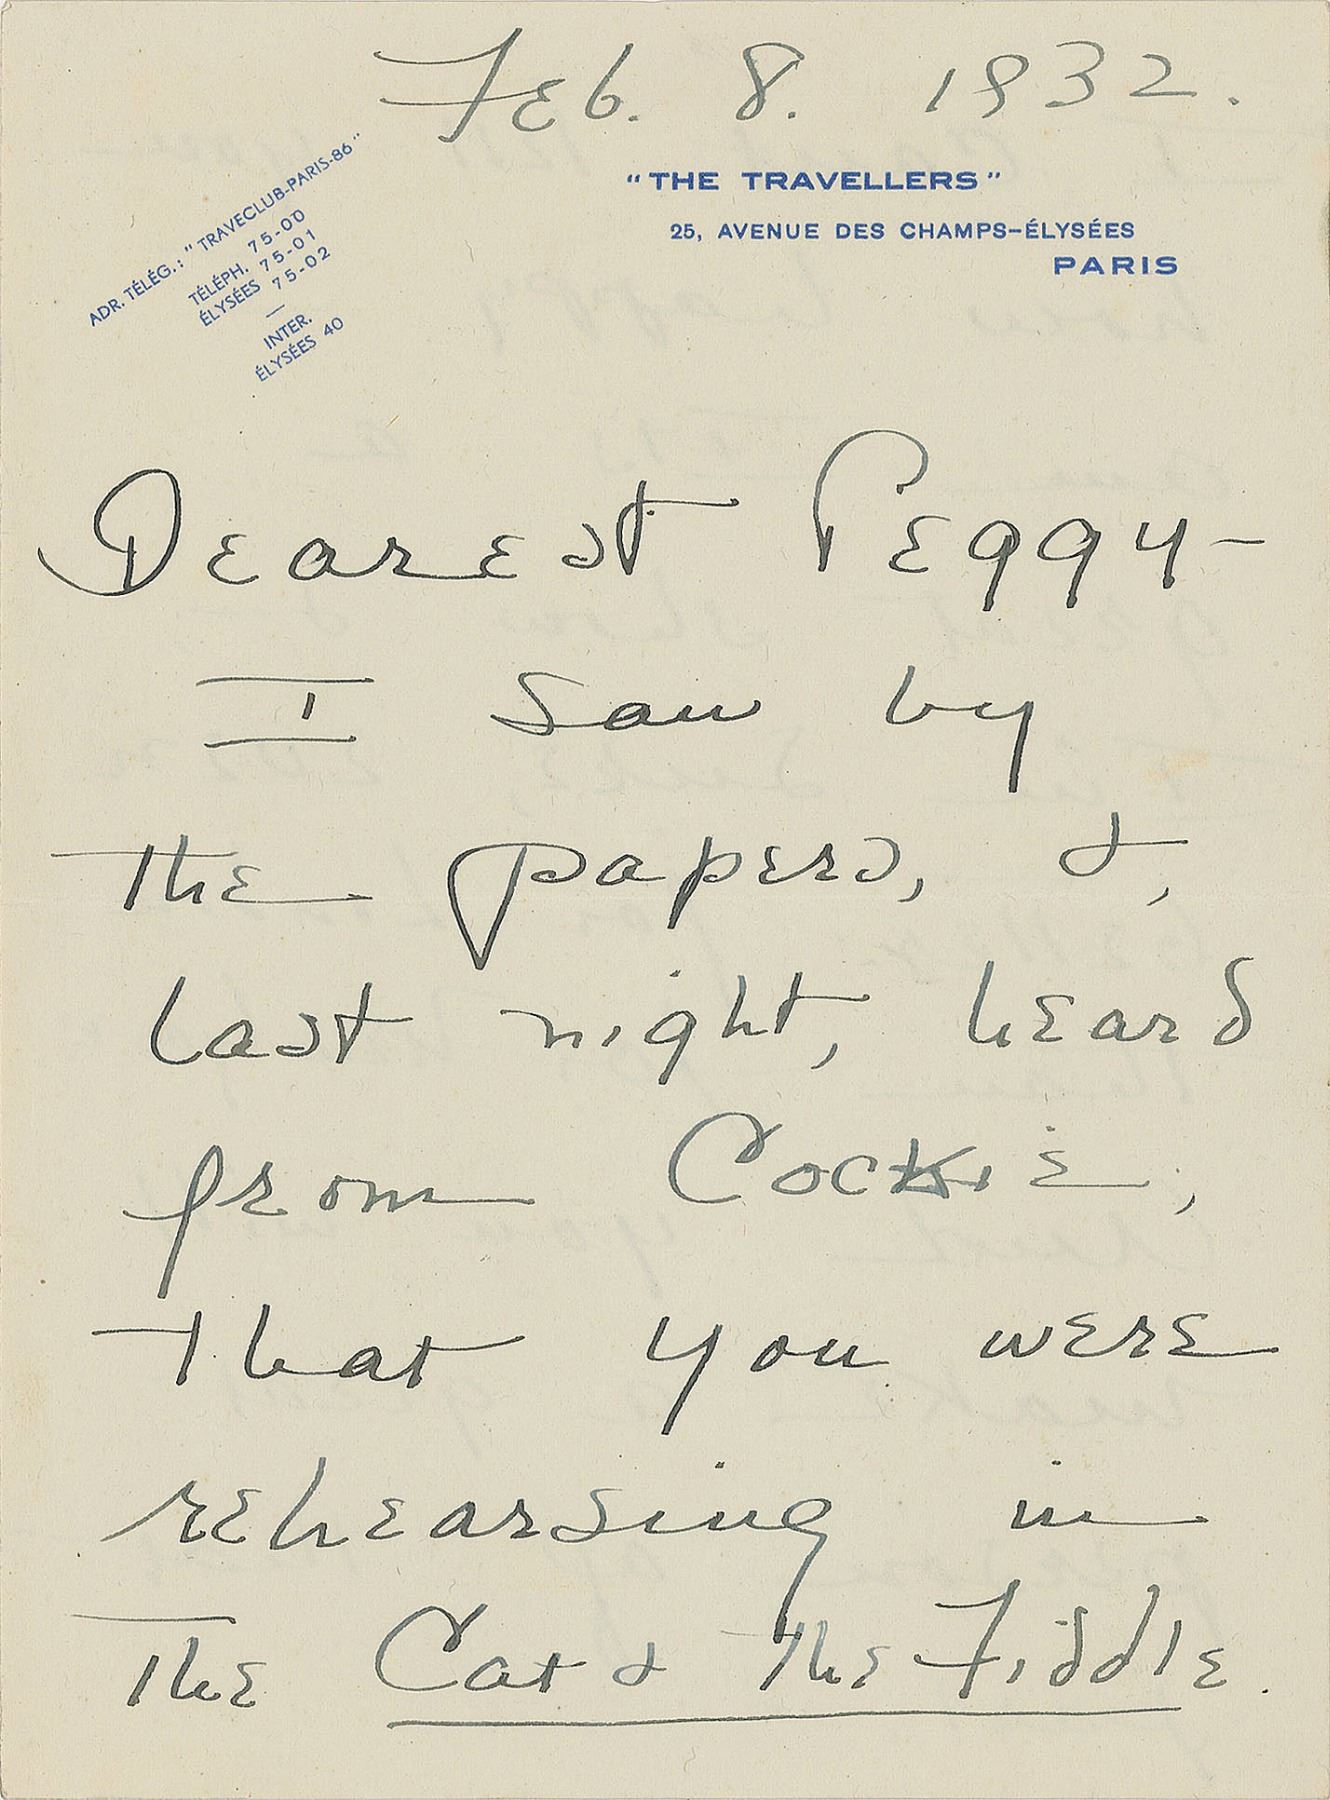 Feb. 8. 1932.
ADR. TÉLÉG.: "TRAVECLUB-PARIS-86"
TÉLÉPH. 75-00
ÉLYSÉES 75-01
75-02
—
INTER.
ÉLYSÉES 40
"THE TRAVELLERS"
25, AVENUE DES CHAMPS-ÉLYSÉES
PARIS
Dearest Peggy-
I saw by
the papers, &,
last night, heard
from Cockie,
that you were
rehearsing in
The Cat & The Fiddle.